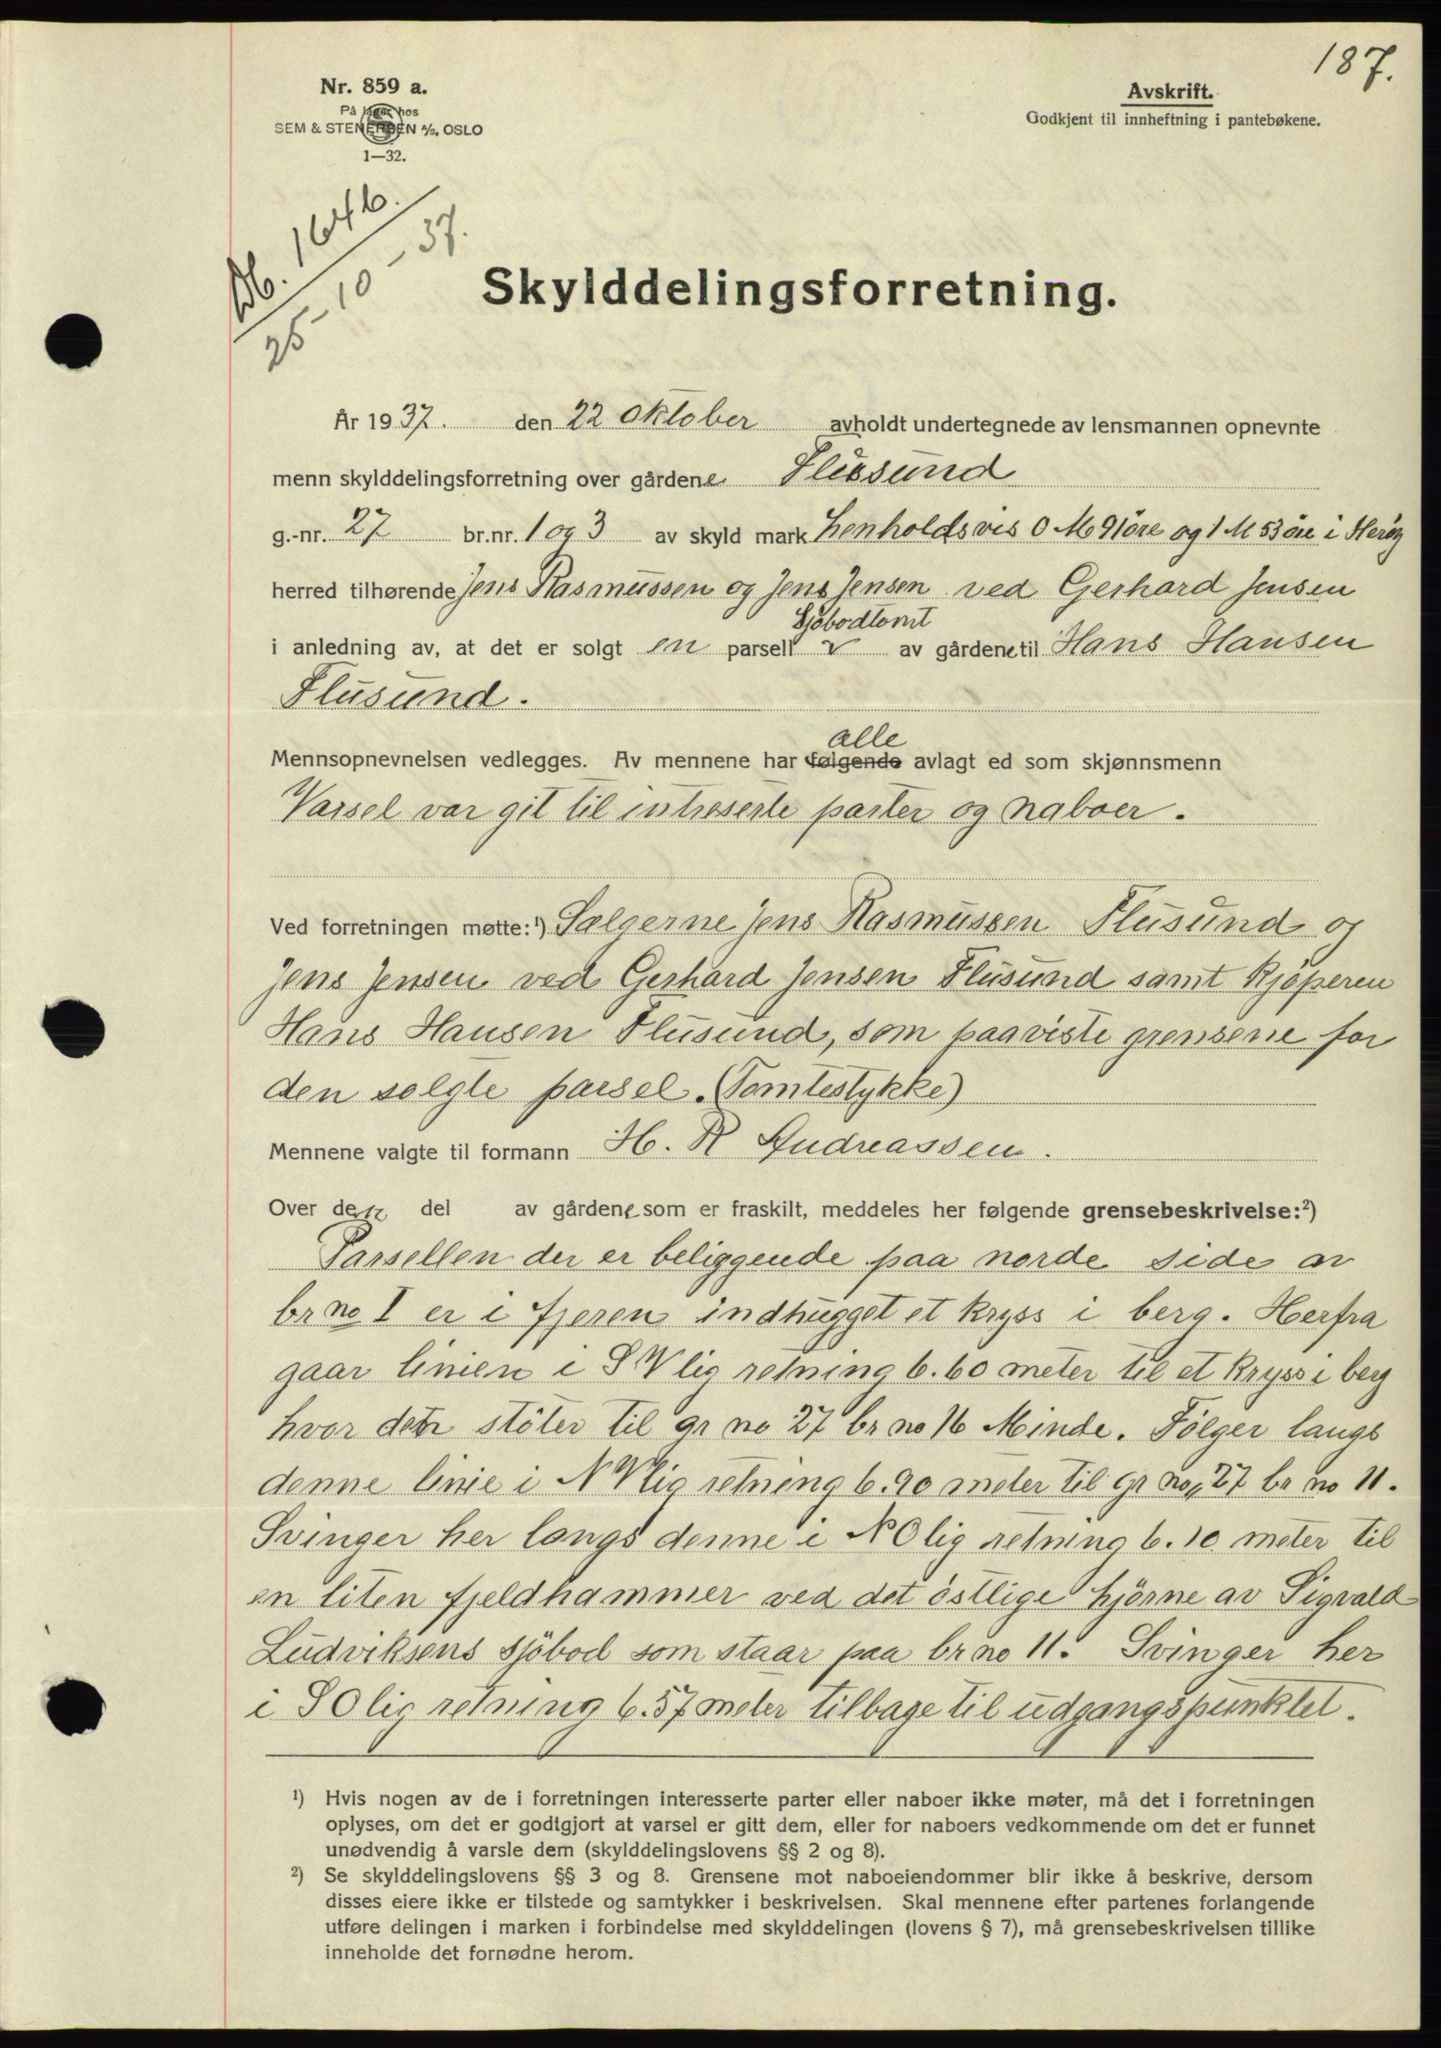 187.
Nr. 859 a.
På lager hos
SEM & STENERSEN A/S, OSLO
1—32.
Avskrift.
Godkjent til innheftning i pantebøkene.
Db. 1646.
25-10-37.
Skylddelingsforretning.
År 1937. den 22 oktober avholdt undertegnede av lensmannen opnevnte
menn skylddelingsforretning over gårdene Flusund
g.-nr. 27 br.nr. 1 og 3 av skyld mark henholdsvis 0 M 91 öre og 1 M 53 öre i Heröy
herred tilhørende Jens Rasmussen og Jens Jensen ved Gerhard Jensen
Sjöbodtomt
i anledning av, at det er solgt en parsell v av gårdene til Hans Hansen
Flusund.
alle
Mennsopnevnelsen vedlegges. Av mennene har følgende avlagt ed som skjønnsmenn
Varsel var git til intreserte parter og naboer.
Ved forretningen møtte:¹) Sælgerne Jens Rasmussen Flusund og
Jens Jensen ved Gerhard Jensen Flusund samt kjöperen
Hans Hansen Flusund, som paaviste grensene for
den solgte parsel. (Tomtestykke)
Mennene valgte til formann H. R Andreassen.
Over den del av gårdene som er fraskilt, meddeles her følgende grensebeskrivelse:²)
Parsellen der er beliggende paa nordre side av
br no I er i fjæren indhugget et kryss i berg. Herfra
gaar linien i S V lig retning 6.60 meter til et kryss i berg
hvor den stöter til gr no 27 br no 16 Minde. Fölger langs
denne linie i N V lig retning 6.90 meter til gr no 27 br no 11.
Svinger her langs denne i N O lig retning 6.10 meter til
en liten fjeldhammer ved det östlige hjörne av Sigvald
Ludviksens sjöbod som staar paa br no 11. Svinger her
i S O lig retning 6.57 meter tilbage til udgangspunktet.
¹) Hvis nogen av de i forretningen interesserte parter eller naboer ikke møter, må det i forretningen
oplyses, om det er godtgjort at varsel er gitt dem, eller for naboers vedkommende om det er funnet
unødvendig å varsle dem (skylddelingslovens §§ 2 og 8).
²) Se skylddelingslovens §§ 3 og 8. Grensene mot naboeiendommer blir ikke å beskrive, dersom
disses eiere ikke er tilstede og samtykker i beskrivelsen. Skal mennene efter partenes forlangende
utføre delingen i marken i forbindelse med skylddelingen (lovens § 7), må grensebeskrivelsen tillike
inneholde det fornødne herom.